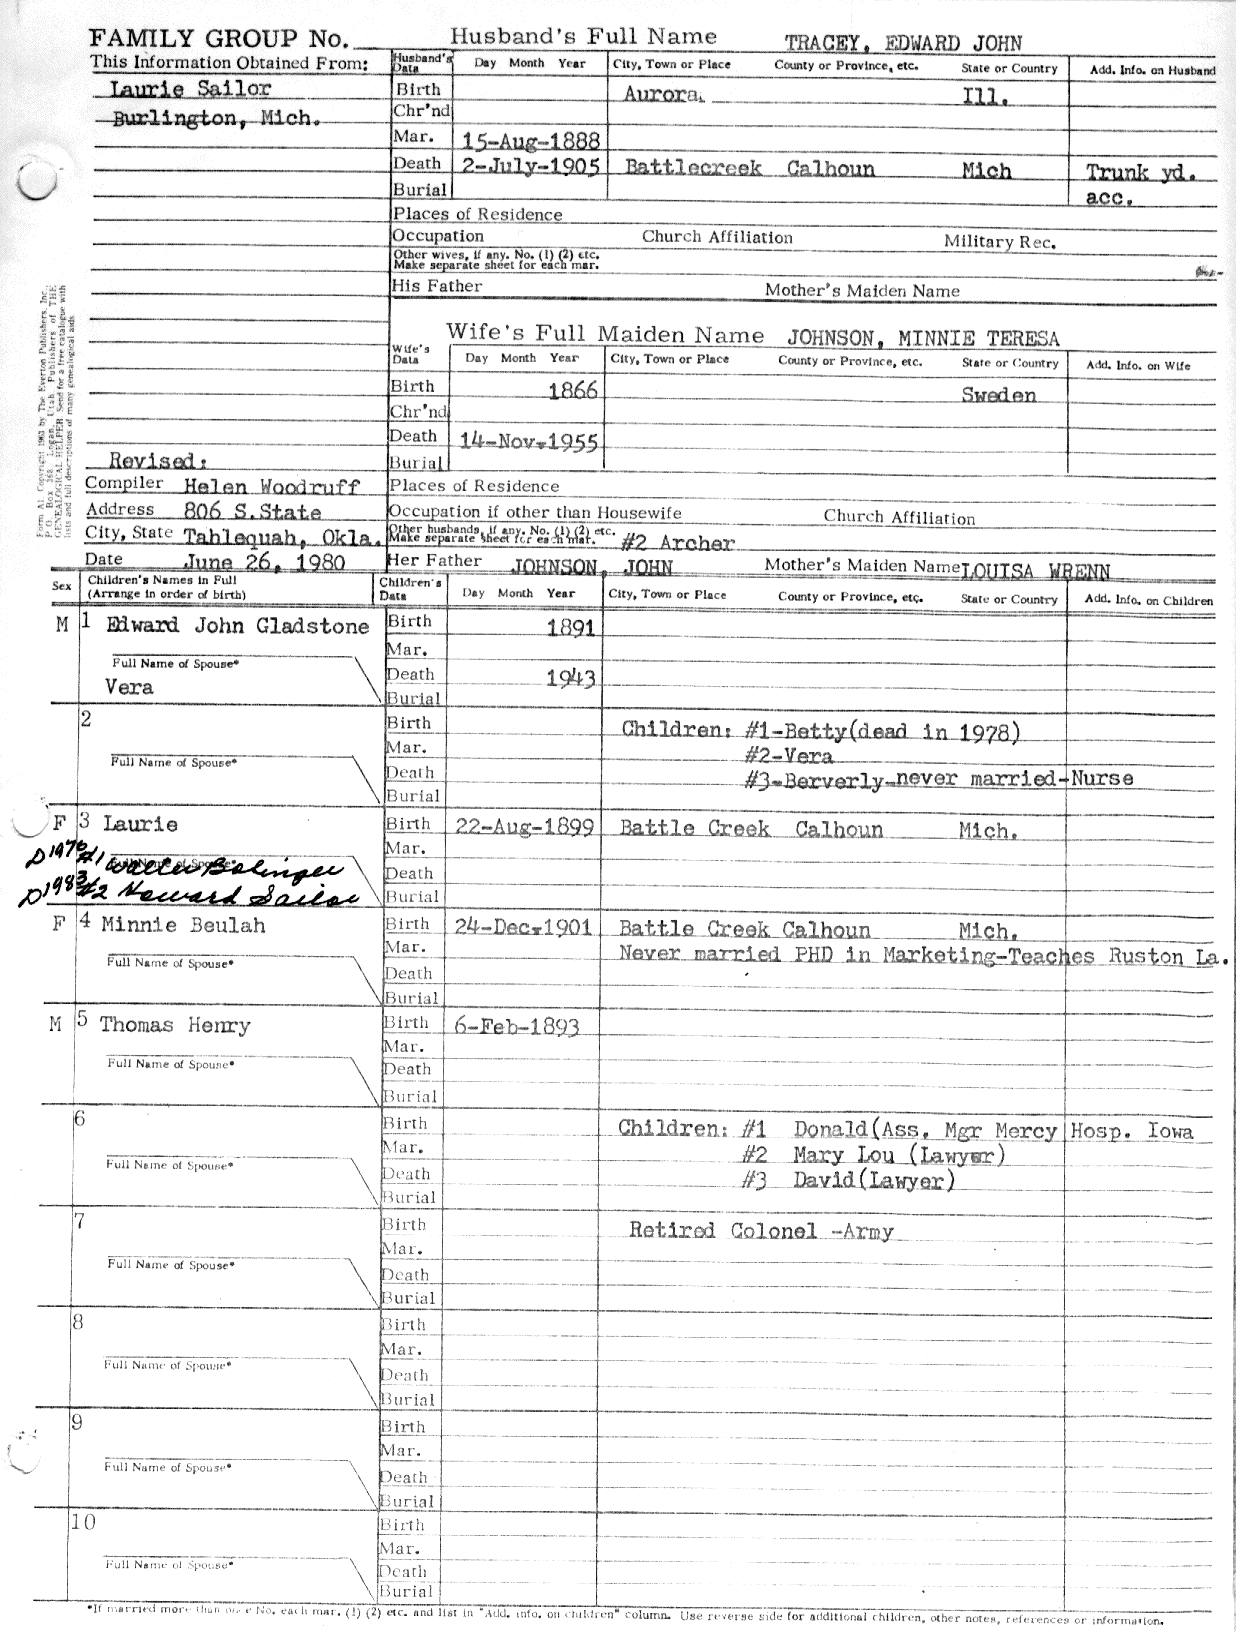 FAMILY GROUP No. Husband's Full Name TRACEY, EDWARD JOHN
This Information Obtained From: Husband's Data Day Month Year City, Town or Place County or Province, etc. State or Country Add. Info. on Husband
Laurie Sailor Birth Aurora, Ill.
Burlington, Mich. Chr'nd
Mar. 15-Aug-1888
Death 2-July-1905 Battlecreek Calhoun Mich Trunk yd.
Burial acc.
Places of Residence
Occupation Church Affiliation Military Rec.
Other wives, if any. No. (1) (2) etc.
Make separate sheet for each mar.
His Father Mother's Maiden Name
Form A1. Copyright 1963 by The Everton Publishers, Inc.,
P.O. Box 368, Logan, Utah. Publishers of THE
GENEALOGICAL HELPER. Send for a free catalogue with
lists and full descriptions of many genealogical aids
Wife's Full Maiden Name JOHNSON, MINNIE TERESA
Wife's Data Day Month Year City, Town or Place County or Province, etc. State or Country Add. Info. on Wife
Birth 1866 Sweden
Chr'nd
Death 14-Nov-1955
Revised: Burial
Compiler Helen Woodruff Places of Residence
Address 806 S.State Occupation if other than Housewife Church Affiliation
City, State Tahlequah, Okla. Other husbands, if any. No. (1) (2) etc. Make separate sheet for each mar. #2 Archer
Date June 26, 1980 Her Father JOHNSON, JOHN Mother's Maiden Name LOUISA WRENN
Sex Children's Names in Full (Arrange in order of birth) Children's Data Day Month Year City, Town or Place County or Province, etc. State or Country Add. Info. on Children
M 1 Edward John Gladstone Birth 1891
Mar.
Full Name of Spouse*
Vera Death 1943
Burial
2 Birth Children: #1-Betty(dead in 1978)
Mar. #2-Vera
Full Name of Spouse*
Death #3-Berverly-never married-Nurse
Burial
F 3 Laurie Birth 22-Aug-1899 Battle Creek Calhoun Mich.
Mar.
Full Name of Spouse*
D1976 #1 Walter Bolinger Death
D1983 #2 Howard Sailor Burial
F 4 Minnie Beulah Birth 24-Dec-1901 Battle Creek Calhoun Mich.
Mar. Never married PHD in Marketing-Teaches Ruston La.
Full Name of Spouse*
Death
Burial
M 5 Thomas Henry Birth 6-Feb-1893
Mar.
Full Name of Spouse*
Death
Burial
6 Birth Children: #1 Donald(Ass. Mgr Mercy Hosp. Iowa
Mar. #2 Mary Lou (Lawyer)
Full Name of Spouse*
Death #3 David(Lawyer)
Burial
7 Birth Retired Colonel -Army
Mar.
Full Name of Spouse*
Death
Burial
8 Birth
Mar.
Full Name of Spouse*
Death
Burial
9 Birth
Mar.
Full Name of Spouse*
Death
Burial
10 Birth
Mar.
Full Name of Spouse*
Death
Burial
*If married more than once No. each mar. (1) (2) etc. and list in "Add. info. on children" column. Use reverse side for additional children, other notes, references or information.